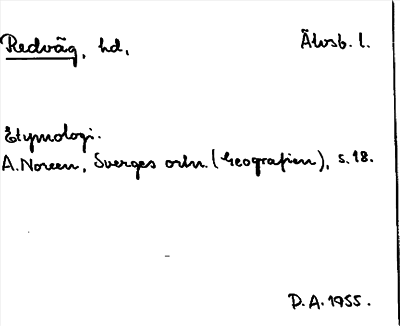 Redväg, hd.
Älvsb. l.
Etymologi.
A. Noreen, Sveriges ortn. (Geografien), s. 18.
D. A. 1955.